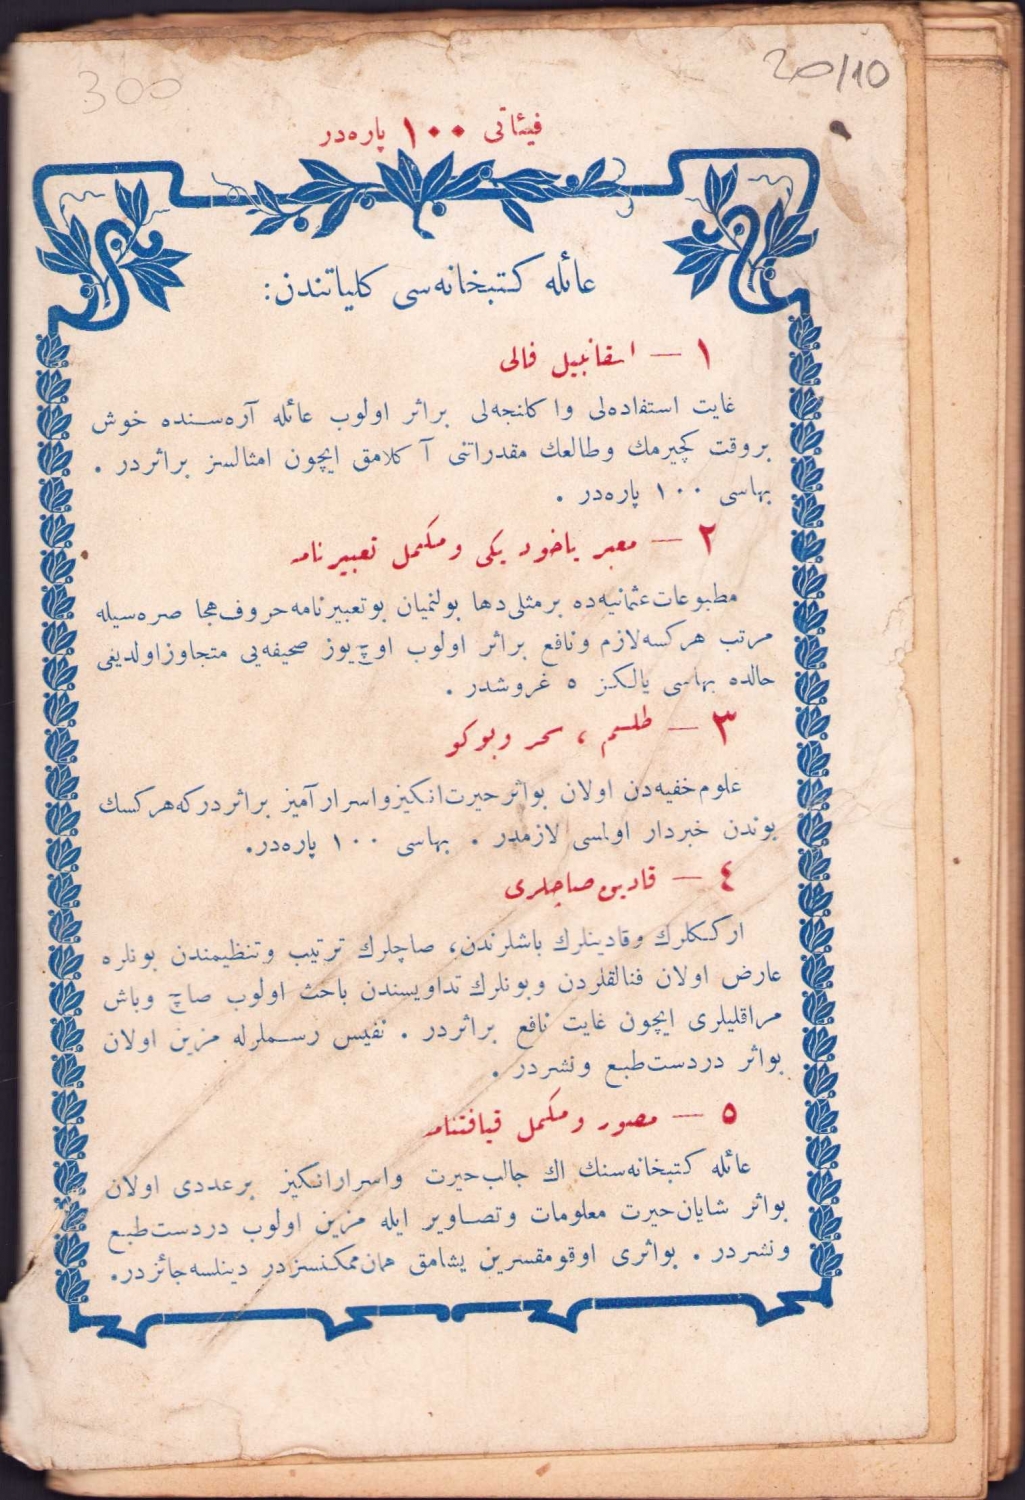 300
20/10
فیئاتی ١٠٠ پاره‌در
عائله کتبخانه‌سی کلیاتندن:
١ — اسقانبیل فالی
غایت استفاده‌لی واکلنجه‌لی براثر اولوب عائله آره‌سنده خوش
بروقت کچیرمك وطالعك مقدراتنی آکلامق ایچون امثالسز براثردر .
بهاسی ١٠٠ پاره‌در .
٢ — معبر یاخود یکی ومکمل تعبیرنامه
مطبوعات‌عثمانیه‌ده برمثلی‌دها بولنمیان بوتعبیرنامه‌حروف‌هجا صره‌سیله
مرتب هرکسه‌لازم ونافع براثر اولوب اوچ‌یوز صحیفه‌یی متجاوزاولدیغی
حالده بهاسی یالکز ٥ غروشدر .
٣ — طلسم ، سحر وبوکو
علوم‌خفیه‌دن اولان بواثرحیرت‌انکیزواسرارآمیز براثردرکه‌هرکسك
بوندن خبردار اولمسی لازمدر . بهاسی ١٠٠ پاره‌در.
٤ — قادین صاچلری
ارککلرك وقادینلرك باشلرندن، صاچلرك ترتیب وتنظیمندن بونلره
عارض اولان فنالقلردن وبونلرك تداویسندن باحث اولوب صاچ وباش
مراقلیلری ایچون غایت نافع براثردر . نفیس رسملرله مزین اولان
بواثر دردست‌طبع ونشردر .
٥ — مصور ومکمل قیافتنامه
عائله کتبخانه‌سنك اك جالب‌حیرت واسرارانکیز برعددی اولان
بواثر شایان‌حیرت معلومات وتصاویر ایله مزین اولوب دردست‌طبع
ونشردر . بواثری اوقومقسزین یشامق همان‌ممکنسزدر دینلسه‌جائزدر.